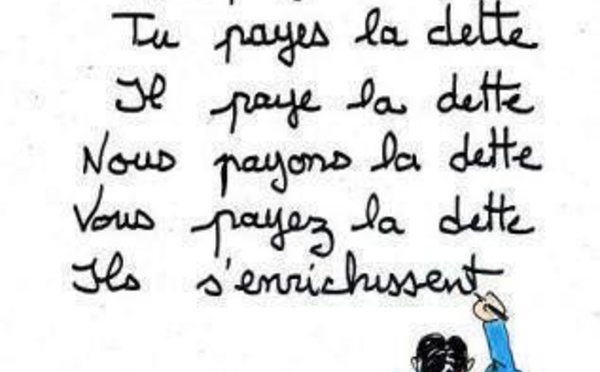 Tu payes la dette
Il paye la dette
Nous payons la dette
Vous payez la dette
Ils s'enrichissent